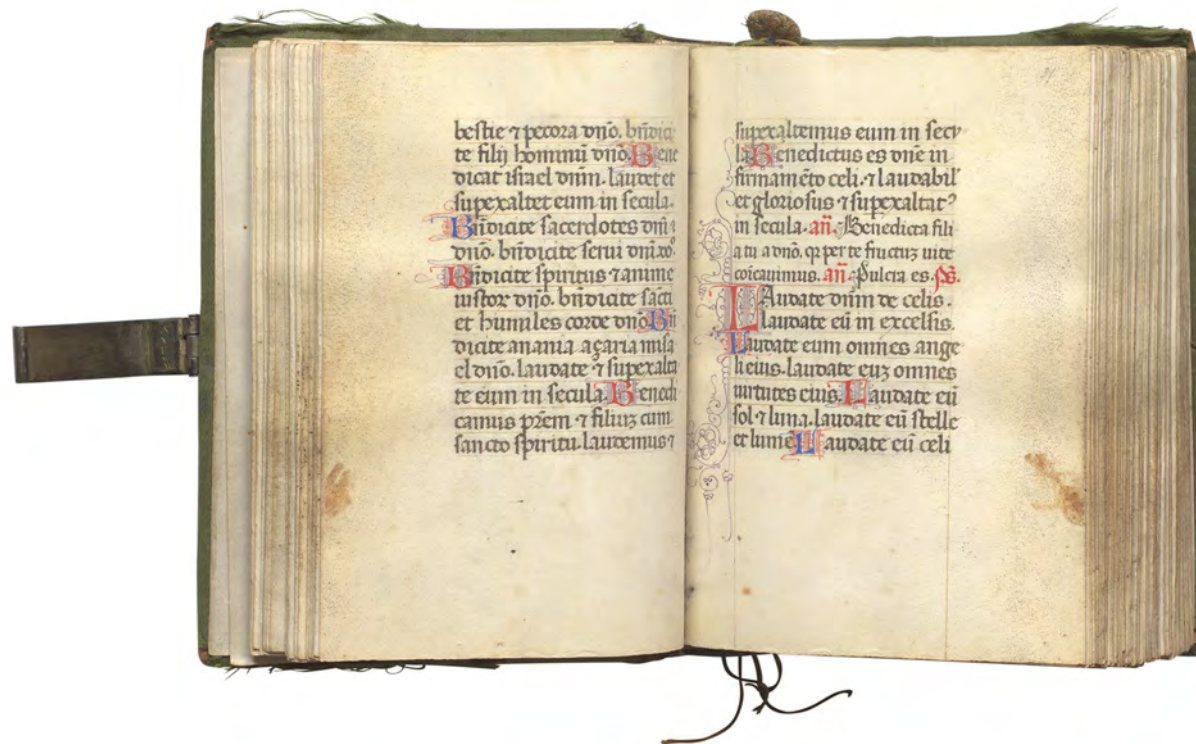 bestie ⁊ pecora dño. bñdici
te filij hominũ dño. Bene
dicat israel dñm. laudet et
supexaltet eum in secula.
Bñdicite sacerdotes dñi
dño. bñdicite serui dñi
Bñdicite spiritus ⁊ anime
iustor dño. bñdicite sãcti
et humiles corde dño. Bñ
dicite anania açaria misa
el dño. laudate ⁊ supexalta
te eum in secula. Benedi
camus prẽm ⁊ filiuȝ cum
sancto spiritu. laudemus ⁊
supexaltemus eum in secu
la. Benedictus es dñe in
firmamẽto celi. ⁊ laudabil'
et gloriosus ⁊ supexaltatꝰ
in secula. añ. Benedicta fili
a tu a dño. qꝛ per te fructuȝ uite
cõicauimus. añ. Pulcra es. ps.
Laudate dñm de celis.
laudate eũ in excelsis.
Laudate eum omnes ange
li eius. laudate euȝ omnes
uirtutes eius. Laudate eũ
sol ⁊ luna. laudate eũ stelle
et lumẽ. Laudate eũ celi